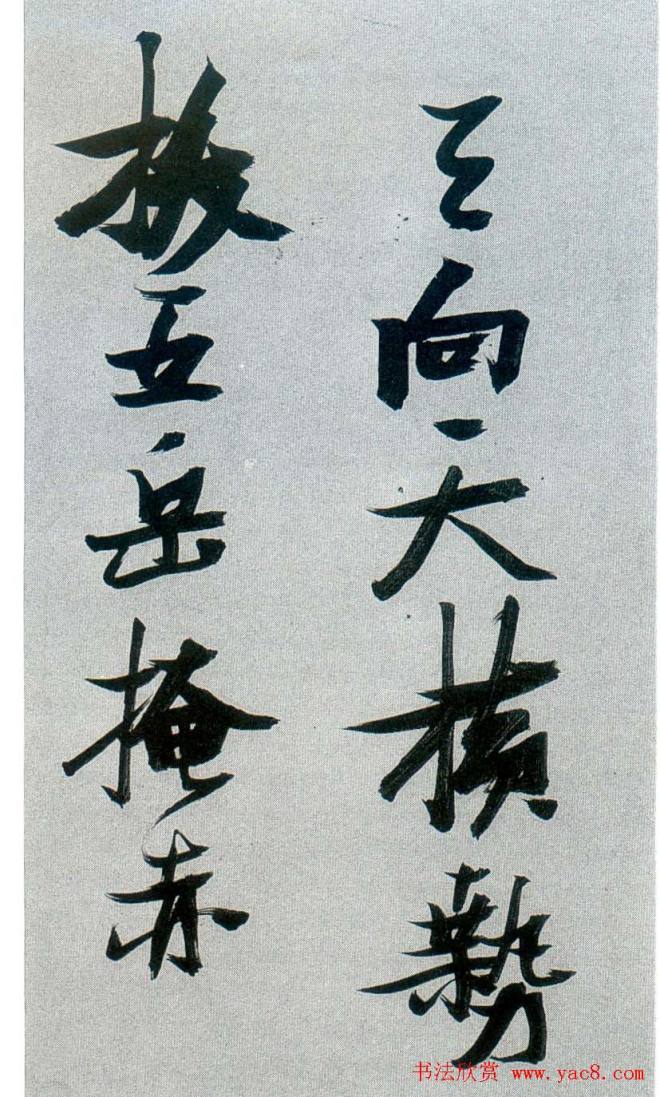 天向天横勢
拔五岳掩赤
书法欣赏 www.yac8.com